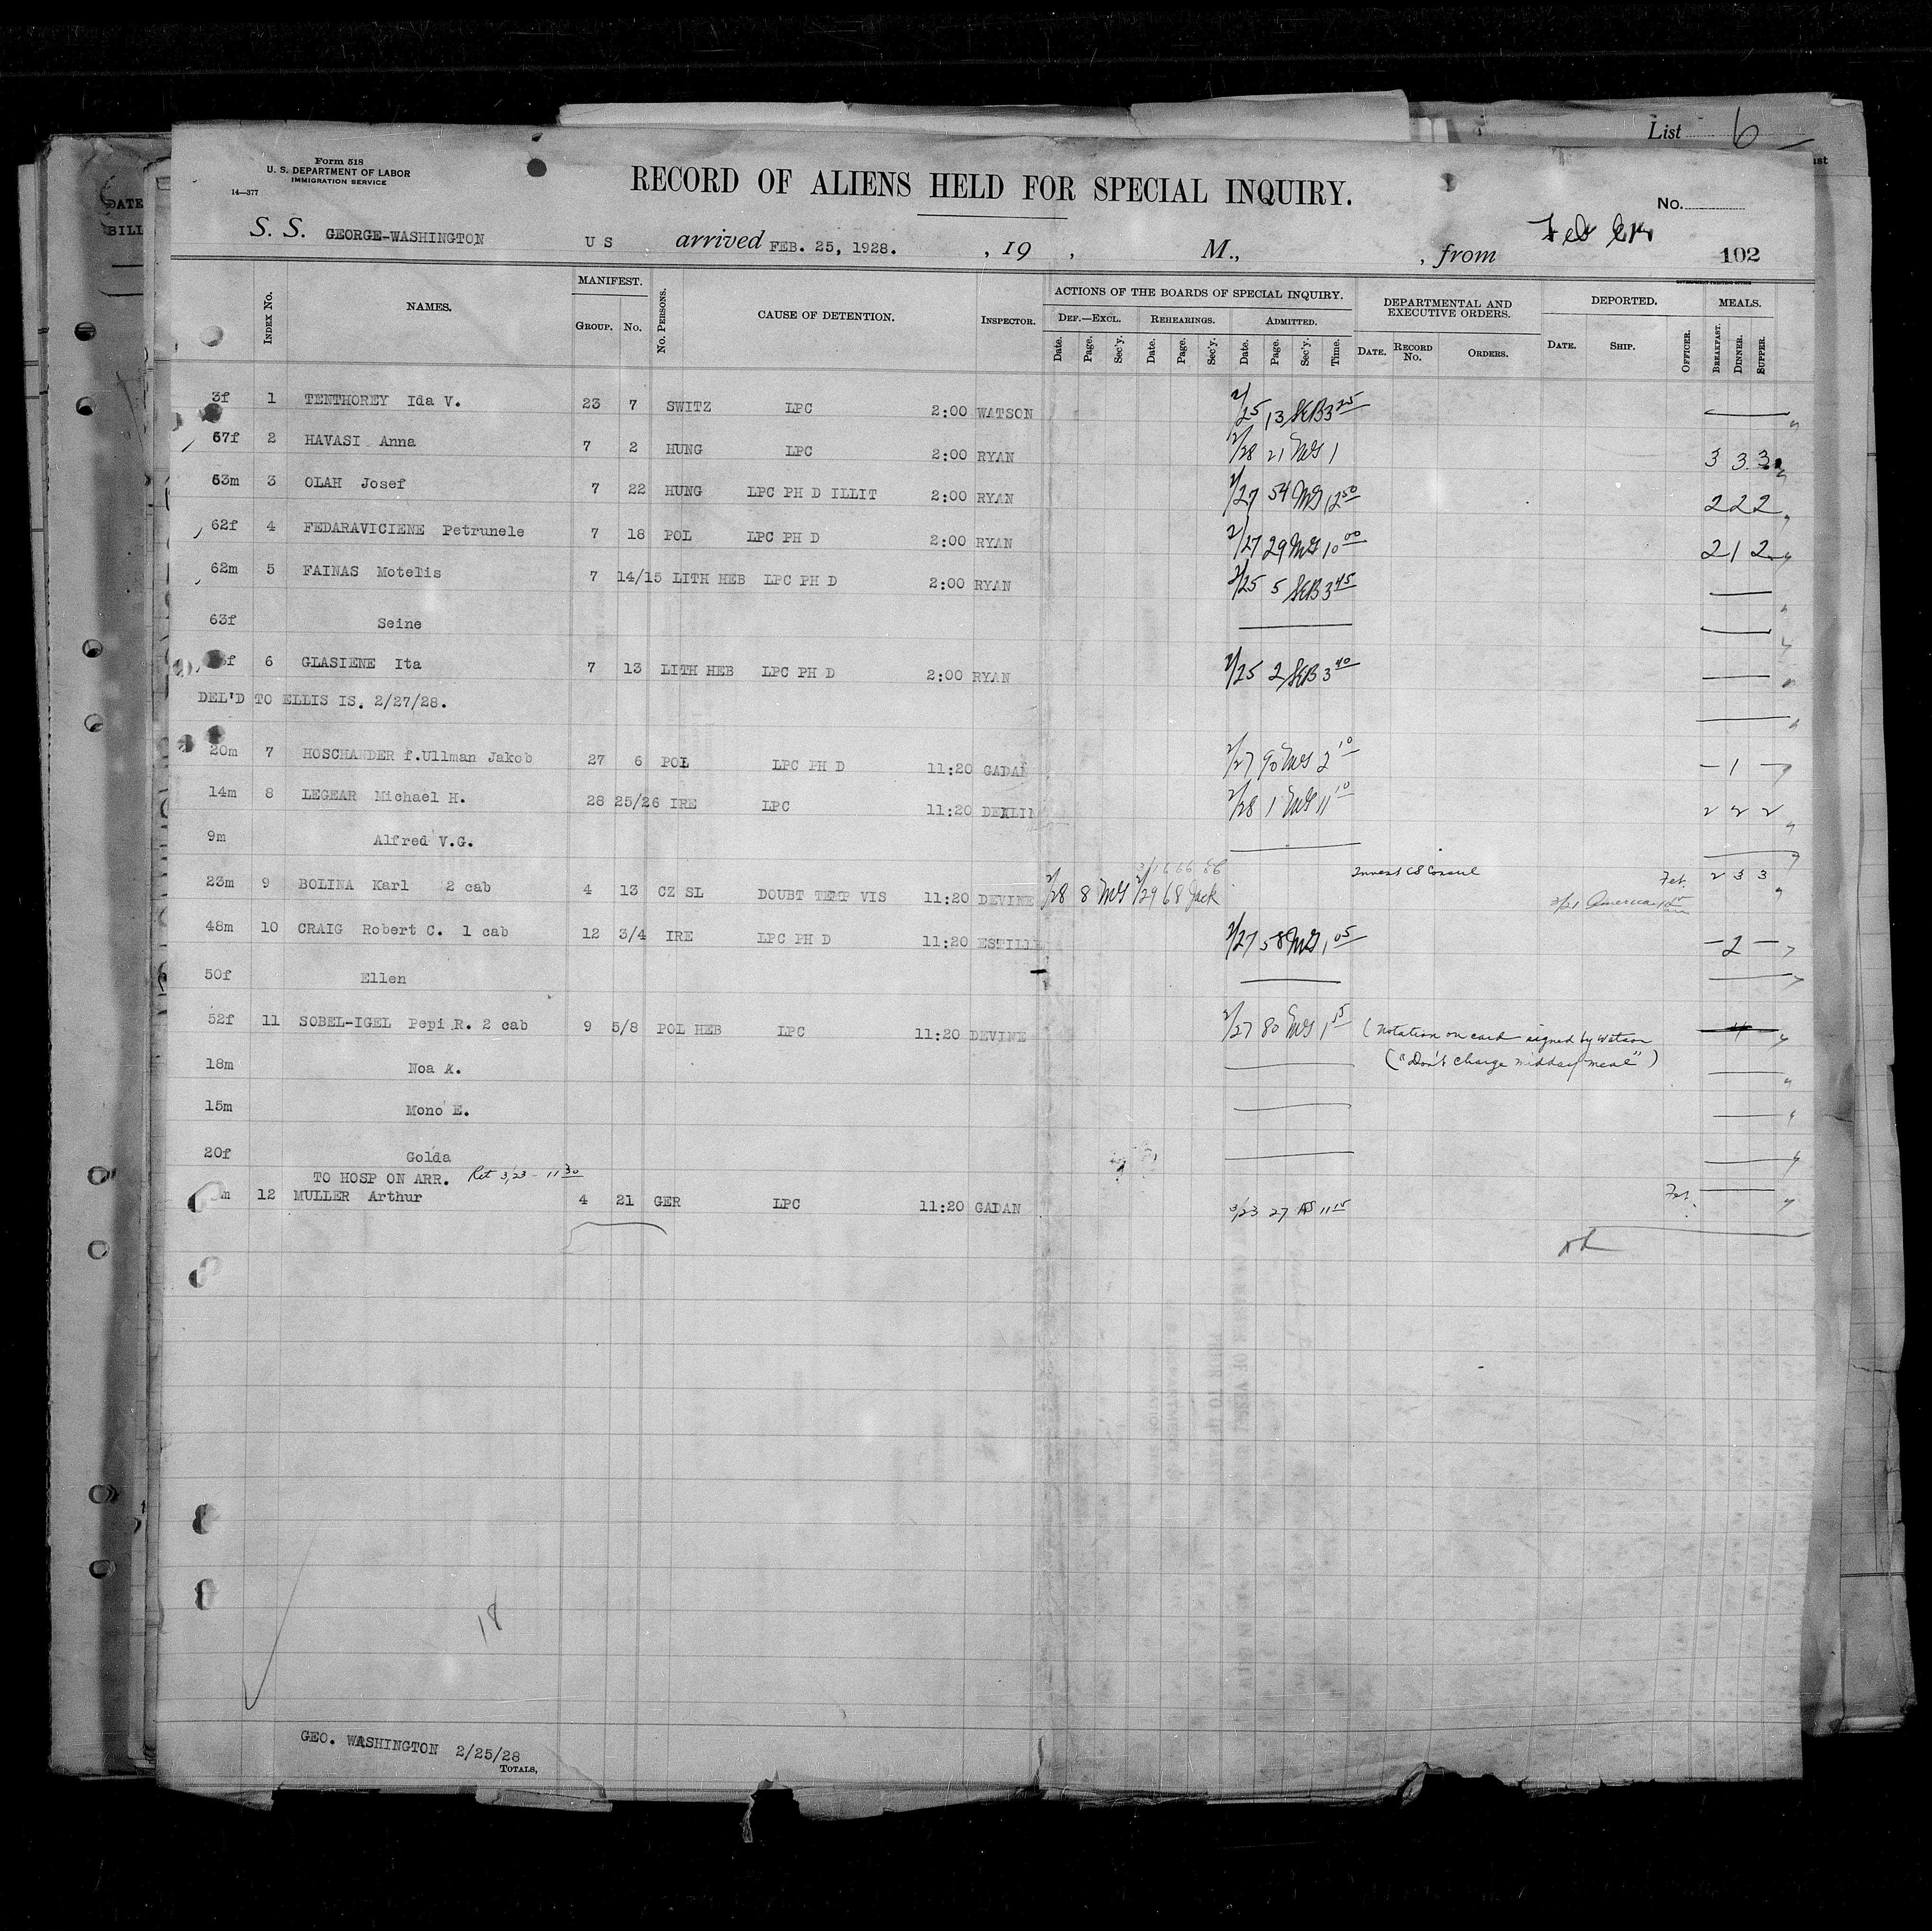 List 6
Form 518
U. S. DEPARTMENT OF LABOR
IMMIGRATION SERVICE
14—377
RECORD OF ALIENS HELD FOR SPECIAL INQUIRY.
No.
S. S. GEORGE-WASHINGTON U S arrived FEB. 25, 1928. , 19 , M., , from 102
DATE
BILL
Index No. NAMES. MANIFEST. Group. No. No. Persons. CAUSE OF DETENTION. Inspector. ACTIONS OF THE BOARDS OF SPECIAL INQUIRY. DEPARTMENTAL AND EXECUTIVE ORDERS. DEPORTED. MEALS.
Def.—Excl. Rehearings. Admitted.
Date. Page. Sec'y. Date. Page. Sec'y. Date. Page. Sec'y. Time. Date. Record No. Orders. Date. Ship. Officer. Breakfast. Dinner. Supper.
3f 1 TENTHOREY Ida V. 23 7 SWITZ LPC 2:00 WATSON 2/25 13 SEB 3 25
67f 2 HAVASI Anna 7 2 HUNG LPC 2:00 RYAN 2/28 21 MG 1 3 3 3
53m 3 OLAH Josef 7 22 HUNG LPC PH D ILLIT 2:00 RYAN 2/27 54 MG 12 50 2 2 2
62f 4 FEDARAVICIENE Petrunele 7 18 POL LPC PH D 2:00 RYAN 2/27 29 MG 10 00 2 1 2
62m 5 FAINAS Motelis 7 14/15 LITH HEB LPC PH D 2:00 RYAN 2/25 5 SEB 3 45
63f Seine
6 GLASIENE Ita 7 13 LITH HEB LPC PH D 2:00 RYAN 2/25 2 SEB 3 40
DEL'D TO ELLIS IS. 2/27/28.
20m 7 HOSCHANDER f.Ullman Jakob 27 6 POL LPC PH D 11:20 GADAN 2/27 90 MG 2 10 — 1 —
14m 8 LEGEAR Michael H. 28 25/26 IRE LPC 11:20 2/28 1 MG 11 10 2 2 2
9m Alfred V.G.
23m 9 BOLINA Karl 2 cab 4 13 CZ SL DOUBT TEMP VIS 11:20 DEVINE 2/28 8 MG 2/29 68 Jack 2 3 3
3/21 America
48m 10 CRAIG Robert C. 1 cab 12 3/4 IRE LPC PH D 11:20 ESTILL 2/27 58 MG 1 05 — 2 —
50f Ellen
52f 11 SOBEL-IGEL Pepi R. 2 cab 9 5/8 POL HEB LPC 11:20 DEVINE 2/27 80 MG 1 15 (Notation on card signed by Watson
("Don't charge midday meal")
18m Noa A.
15m Mono E.
20f Golda
TO HOSP ON ARR. Ret 3/23 - 11 30
m 12 MULLER Arthur 4 21 GER LPC 11:20 GADAN 3/23 27 11 15
18
GEO. WASHINGTON 2/25/28
Totals,